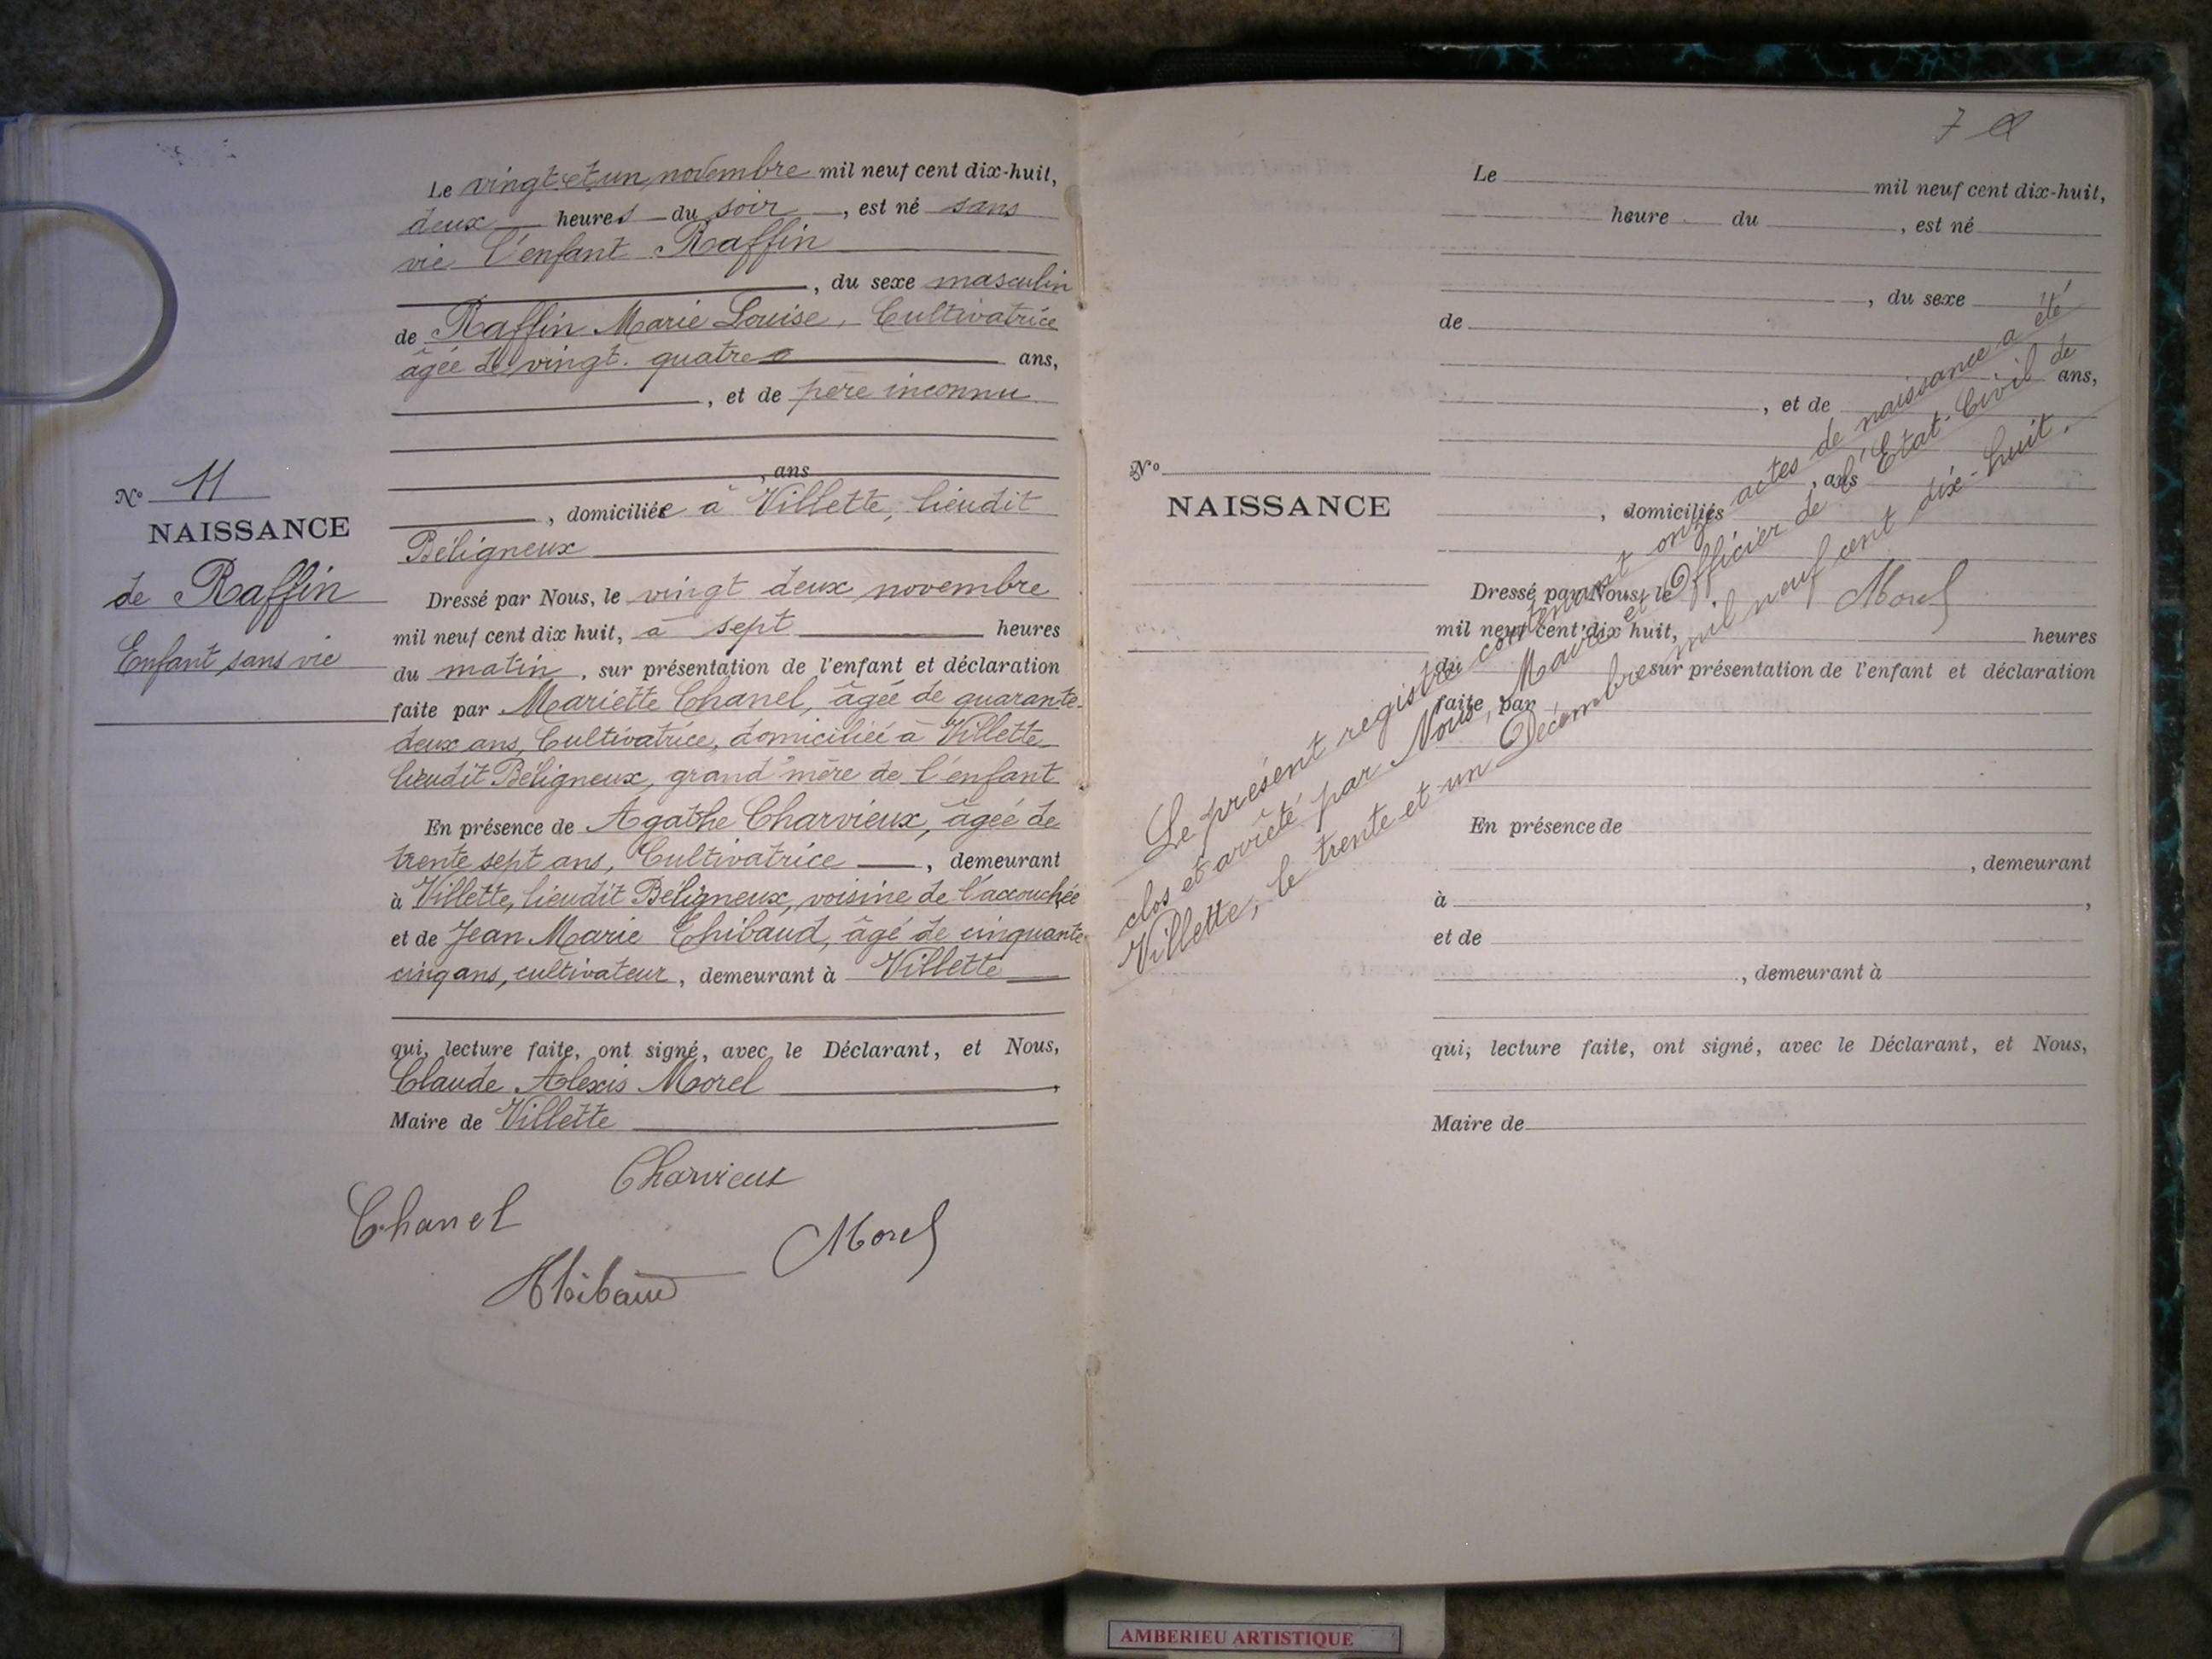 Le vingt et un novembre mil neuf cent dix-huit,
deux heures du soir, est né sans
vie l'enfant Raffin
, du sexe masculin
de Raffin Marie Louise, Cultivatrice
âgée de vingt-quatre ans,
, et de père inconnu
, ans
, domiciliée à Villette, lieudit
Béligneux
N° 11
NAISSANCE
de Raffin
Enfant sans vie
Dressé par Nous, le vingt deux novembre
mil neuf cent dix huit, à sept heures
du matin, sur présentation de l'enfant et déclaration
faite par Mariette Chanel, âgée de quarante-
deux ans, Cultivatrice, domiciliée à Villette
lieudit Béligneux, grand'mère de l'enfant
En présence de Agathe Charvieux, âgée de
trente sept ans, Cultivatrice, demeurant
à Villette, lieudit Béligneux, voisine de l'accouchée
et de Jean Marie Thibaud, âgé de cinquante-
cinq ans, cultivateur, demeurant à Villette
qui, lecture faite, ont signé, avec le Déclarant, et Nous,
Claude Alexis Morel,
Maire de Villette
Charvieux
Chanel
Morel
Thibaud
7
Le mil neuf cent dix-huit,
heure du , est né
, du sexe
de
ans,
, et de
, ans
N°
NAISSANCE
, domiciliés
Dressé par Nous, le
mil neuf cent dix huit, heures
du sur présentation de l'enfant et déclaration
faite par
En présence de
, demeurant
à ,
et de
, demeurant à
qui, lecture faite, ont signé, avec le Déclarant, et Nous,
Maire de
Le présent registre contenant onze actes de naissance a été
clos et arrêté par Nous, Maire et Officier de l'Etat-Civil de
Villette, le trente et un Décembre mil neuf cent dix-huit.
Morel
AMBERIEU ARTISTIQUE